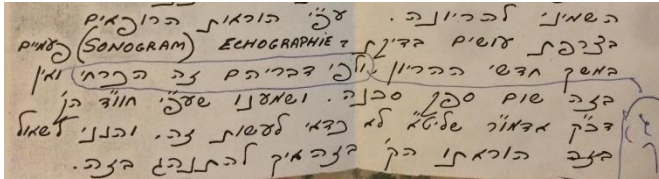 השמיני להריונה. עפ"י הוראות הרופאים
בצרפת עושים בדיקת ECHOGRAPHIE (SONOGRAM) פעמים
במשך חדשי ההריון, ולפי דבריהם זה הכרחי ואין
בזה שום ספק סכנה. ושמענו שעפ"י חוו"ד הק'
דכ"ק אדמו"ר שליט"א לא כדאי לעשות זה. והנני לשאול
בזה הוראתו הק' בזה איך להתנהג בזה.